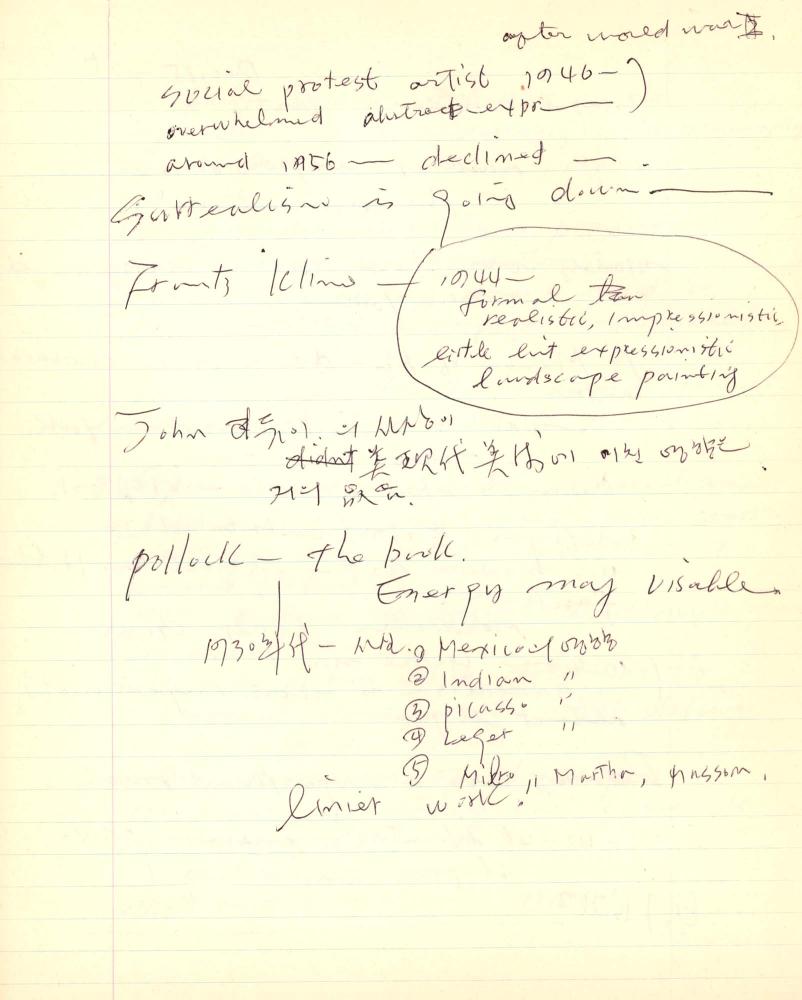 after world war II.
social protest artist 1946—)
overwhelmed abstract expr——
around 1956 — declined — .
Surrealism is going down ———
Frantz Kline — 1944—
formal
realistic, impressionistic,
little bit expressionistic
landscape painting
John 듀이. 의 사상이
didnt 美現代美術에 미친 영향은
거의 없음.
pollock — the book.
Energy may visable.
1930年代 — ① Mexico의 영향
② Indian 〃
③ picasso 〃
④ Leger 〃
⑤ Miro 〃 Martha, Masson.
linier work.